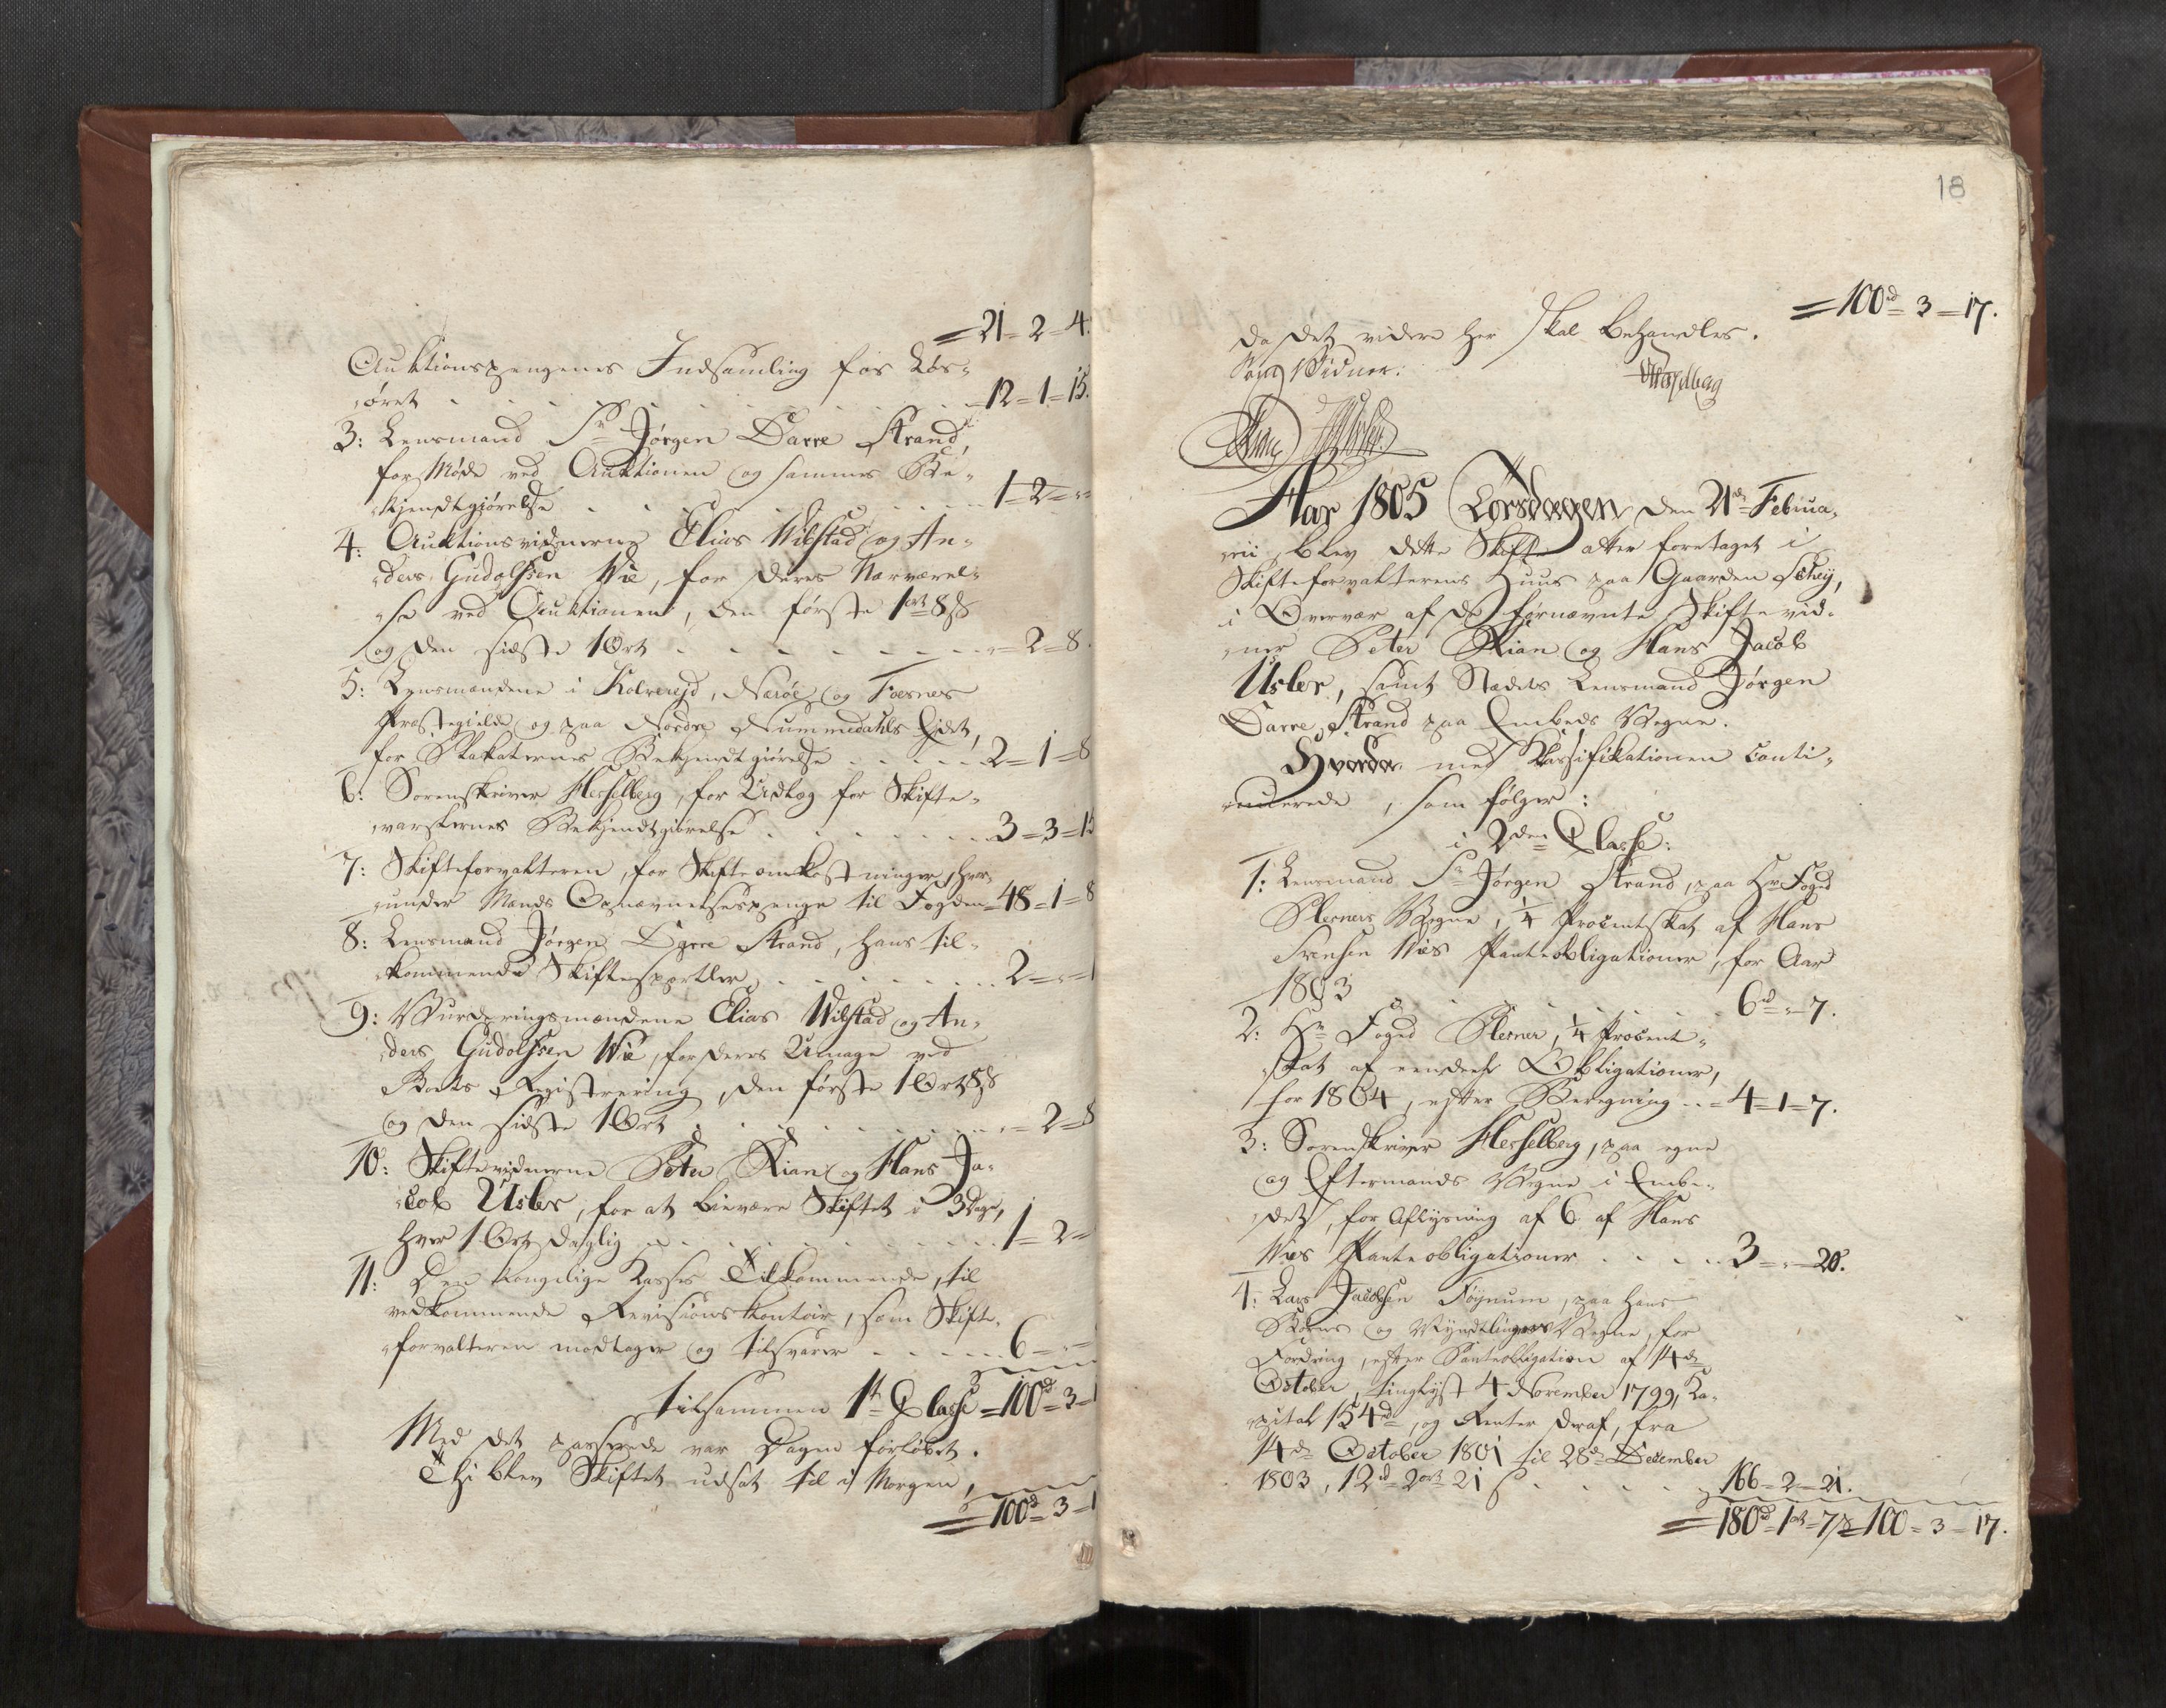 = 21 = 2 = 4.
Auktionspengenes Indsamling for Løs-
øret . . . . . . . . = 12 = 1 = 15.
3: Lensmand Sr Jørgen Darre Strand,
for Møde ved Auktionen og sammes Be-
kjendtgiørelse . . . . . . 1 = 2 = "
4: Auktionsvidnerne Elias Wilstad og An-
ders Gudolfsen Wie, for deres Nærværel-
se ved Auktionen, den første 1ort 8 s
og den sidste 1 Ort . . . . . . " = 2 = 8.
5: Lensmændene i Kolvereid, Nærøe og Foesnes
Præstegield og paa Nordre Nummedahls Eidet,
for Plakaternes Bekjendtgiørelse . . . . 2 = 1 = 8
6: Sorenskriver Hesselberg, for Udlæg for Skifte-
varslernes Bekjendtgiørelse . . . . . 3 = 3 = 15
7: Skifteforvalteren, for Skifteomkostninger, hver-
under Mands Opnævnelsespenge til Fogden = 48 = 1 = 8
8: Lensmand Jørgen Darre Strand, hans til-
kommende Skiftesportler . . . . . . 2 = " =
9: Vurderingsmændene Elias Wilstad og An-
ders Gudolfsen Wie, for deres Umage ved
Boets Registrering, den første 1 Ort 8 s
og den sidste 1 Ort . . . . . . " = 2 = 8
10: Skiftevidnerne Peter Kian og Hans Ja-
cob Usler, for at bievære Skiftet i 3 Dage,
hver 1 Ort daglig . . . . . . 1 = 2 =
11: Den kongelige Kasses Tilkommende, til
vedkommende Revisions Kontoir, som Skifte-
forvalteren modtager og tilsvarer . . . . . 6 = " =
tilsammen 1te Classe = 100d = 3 = 1
Med det passerede var Dagen forløbet.
Thi blev Skiftet udsat til i Morgen,
= 100d = 3 = 1
18
= 100d = 3 = 17.
da det videre her skal behandles.
Som Vidner:
Hesselberg
Aar 1805 Løverdagen den 2de Februa-
rii, blev dette Skifte atter foretaget i
Skifteforvalterens Huus paa Gaarden Schey,
i Overvær af de fornævnte Skiftevid-
ner Peter Kian og Hans Jacob
Usler, samt Stædets Lensmand Jørgen
Darre Strand paa Embeds Vegne.
Hvorda med Klassifikationen conti-
nuerede, som følger:
i 2den Classe:
1: Lensmand Sr Jørgen Strand, paa Hr Foged
Plesners Vegne, 1/4 Procentskat af Hans
Svensen Wies Panteobligationer, for Aar
1803 . . . . . . 6d = " = 7.
2: Hr Foged Plesner, 1/4 Procent-
skat af eendeel Obligationer,
for 1804, efter Beregning . . = 4 = 1 = 7.
3: Sorenskriver Hesselberg, paa egne
og Eftermands Vegne i Embe-
det, for Aflysning af 6 af Hans
Wies Panteobligationer . . . . . 3 = " = 20.
4: Lars Jacobsen Føynum, paa hans
Børns og Myndlingers Vegne, for
Fordring, efter Panteobligation af 14de
October, tinglyst 4 November 1799, Ka-
pital 154d, og Renter deraf, fra
14de October 1801 til 28de December
1803, 12d 2ort 21 s . . . . . 166 = 2 = 21.
= 180d = 1ort = 7 s = 100 = 3 = 17.